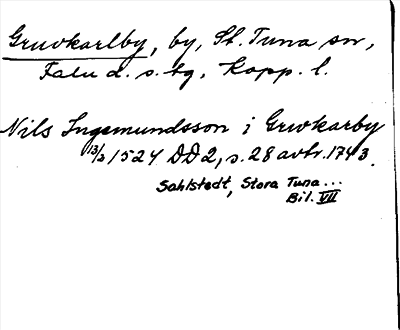 Gruvkarlby, by, St. Tuna sn,
Falu d. s. tg, Kopp. l.
Nils Ingemundsson i Gruvkarby
13/2 1524 DD2, s. 28 avtr. 1743.
Sahlstedt, Stora Tuna...
Bil. VII